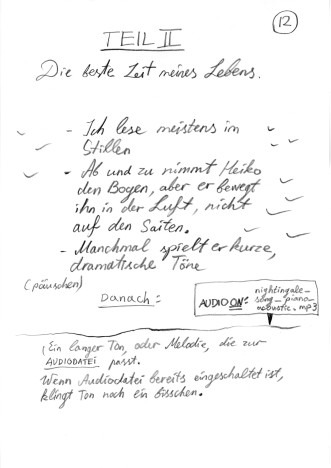 12
TEIL II
Die beste Zeit meines Lebens.
- Ich lese meistens im
Stillen
- Ab und zu nimmt Heiko
den Bogen, aber er bewegt
ihn in der Luft, nicht
auf den Saiten.
- Manchmal spielt er kurze,
dramatische Töne
(päuschen)
Danach:
AUDIO ON: nightingale-
song-piano-
acoustic.mp3
(Ein langer Ton, oder Melodie, die zur
AUDIODATEI passt.
Wenn Audiodatei bereits eingeschaltet ist,
klingt Ton noch ein bisschen.